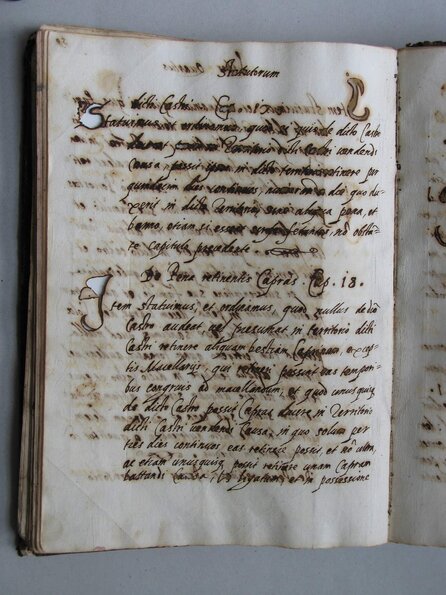 Statutorum
dicti Castri Cap. 17.
Statuimus et ordinamus quod si quis de dicto Castro
vendendi
causa possit ipsas in dicto territorio retinere per
dies continuos, a die quo du-
xerit in dicto territorio sine aliqua pena, et
banno, etiam si essent non obstan-
te capitulo precedente
De Pena retinentis Capras. Cap. 18.
Item statuimus, et ordinamus, quod nullus de dicto
Castro audeat vel presumat in territorio dicti
Castri retinere aliquam bestiam Caprinam, excep-
tis Macellarijs, qui retinere possint eas tempori-
bus congruis ad macellandum, et quod unusquisq
de dicto Castro possit Capras ducere in Territorio
dicti Castri vendendi Causa, in quo solum per
tres dies continuos eas retinere possit, et non ultra,
ac etiam unusquisq possit retinere unam Capram
ligatam, et in possessione